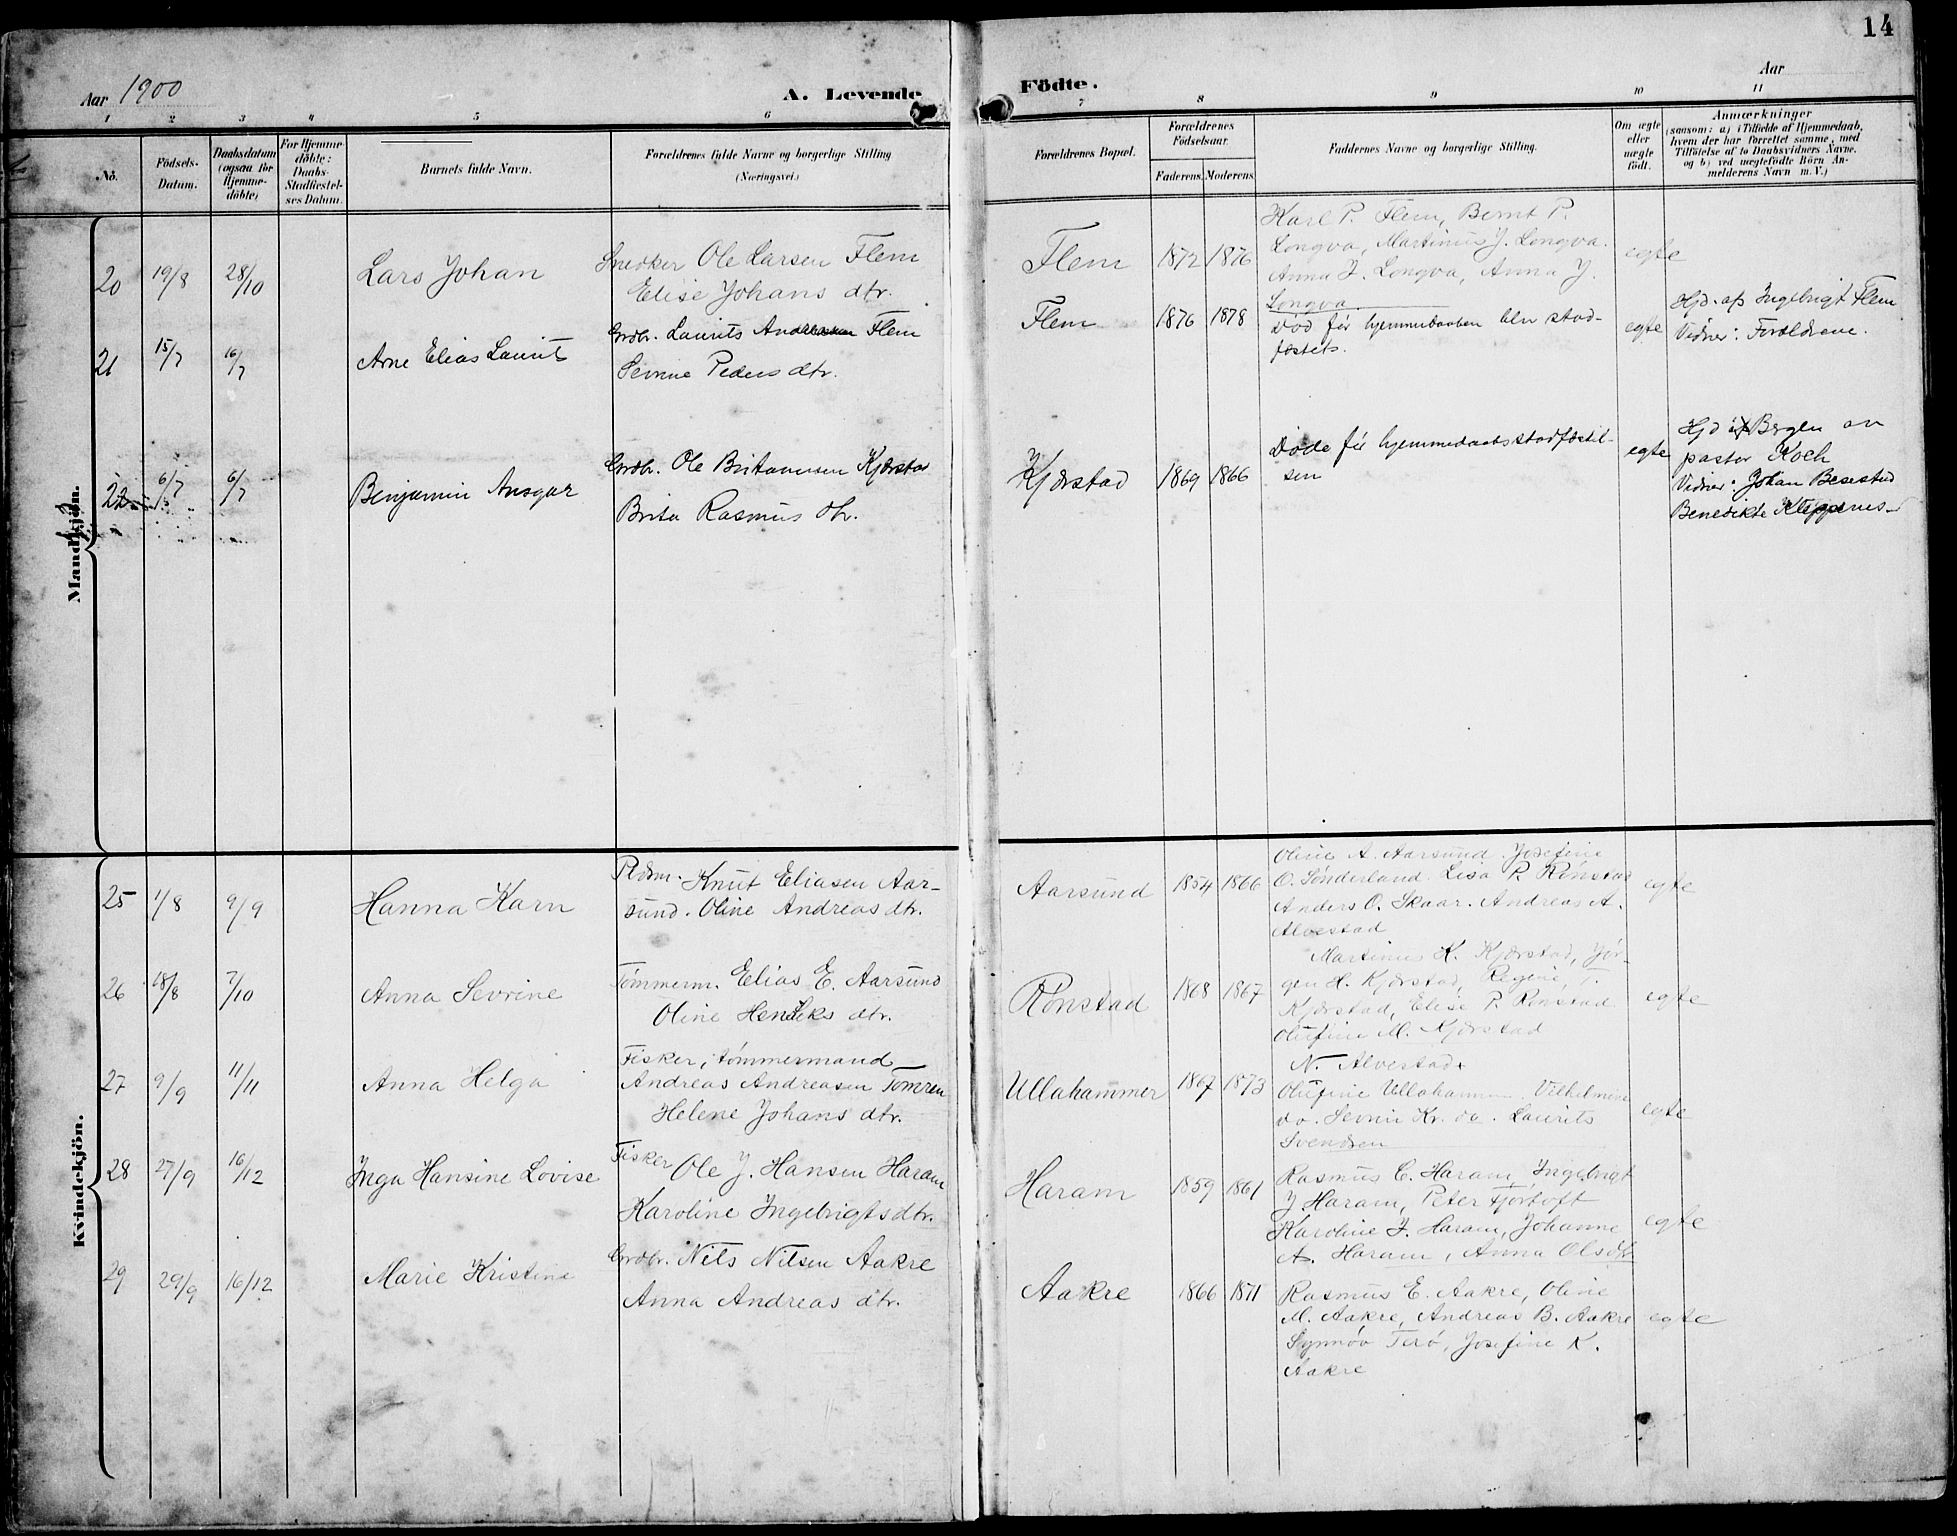 14
Aar 1900
A. Levende
Födte.
Aar
1 2 3 4 5 6 7 8 9 10 11
No.
Födsels-
Datum.
Daabsdatum
(ogsaa for
Hjemme-
döbte)
For Hjemme-
döbte:
Daabs-
Stadfæstel-
ses Datum.
Barnets fulde Navn.
Forældrenes fulde Navne og borgerlige Stilling
(Næringsvei.)
Forældrenes Bopæl.
Forældrenes
Födselsaar.
Faderens. Moderens.
Faddernes Navne og borgerlige Stilling.
Om ægte
eller
uægte
födt.
Anmærkninger
(saasom: a) i Tilfælde af Hjemmedaab,
hvem der har forrettet samme, med
Tilföielse af to Daabsvidners Navne,
og b) ved uegtefödte Börn An-
melderens Navn m. V.)
Mandkjön.
20 19/8 28/10 Lars Johan
Snedker Ole Larsen Flem
Elise Johans dtr.
Flem 1872 1876
Karl P. Flem, Bernt P.
Longva, Martinus J. Longva.
Anna J. Longva, Anna J.
Longva
egte
21 15/7 16/7 Arne Elias Laurits
Grdbr. Laurits Andreassen Flem
Sevrine Peders dtr.
Flem 1876 1878
Död för hjemmedaaben blev stad-
fæstet.
egte
Hjd. af Ingebrigt Flem
Vidner: Forældrene.
22 6/7 6/7 Benjamin Ansgar
Grdbr. Ole Kjærstad
Brita Rasmus dtr.
Kjærstad 1869 1866
Døde för hjemmedaabsstadfæstel-
sen
egte
Hjd i Bergen av
pastor Koch
Vidner: Johan
Benedikte
Kvindekjön.
25 1/8 9/9 Hanna Karn
Pldsm. Knut Eliasen Aar-
sund. Oline Andreas dtr.
Aarsund 1854 1866
Oline A. Aarsund Josefine
O. Sönderland. Lisa P. Rönstad
Anders O. Skaar. Andreas A.
Alvestad
egte
26 18/8 7/10 Anna Sevrine
Tömmerm. Elias E. Aarsund
Oline Henriks dtr.
Rönstad 1868 1867
Martinus K. Kjærstad, Jör-
gen H. Kjærstad, Regine T.
Kjærstad, Elise P. Rönstad
Olufine M. Kjærstad
egte
27 9/9 11/11 Anna Helga
Fisker, tömmermand
Andreas Andreasen Tomren
Helene Johans dtr.
Ullahammer 1867 1873
N. Alvestad
Olufine Ullahammer Vilhelmine
do. Sevrin Kr. do. Laurits
Svendsen
egte
28 27/9 16/12 Inga Hansine Lovise
Fisker Ole J. Hansen Haram
Karoline Ingebrigtsdtr.
Haram 1859 1861
Rasmus C. Haram, Ingebrigt
J Haram, Peter Fjörtoft
Karoline J. Haram, Johanne
A. Haram, Anna Olsdtr
egte
29 29/9 16/12 Marie Kristine
Grdbr. Nils Nilsen Aakre
Anna Andreas dtr.
Aakre 1866 1871
Rasmus E. Aakre, Oline
M. Aakre, Andreas B. Aakre
Synnöv Terö, Josefine K.
Aakre
egte